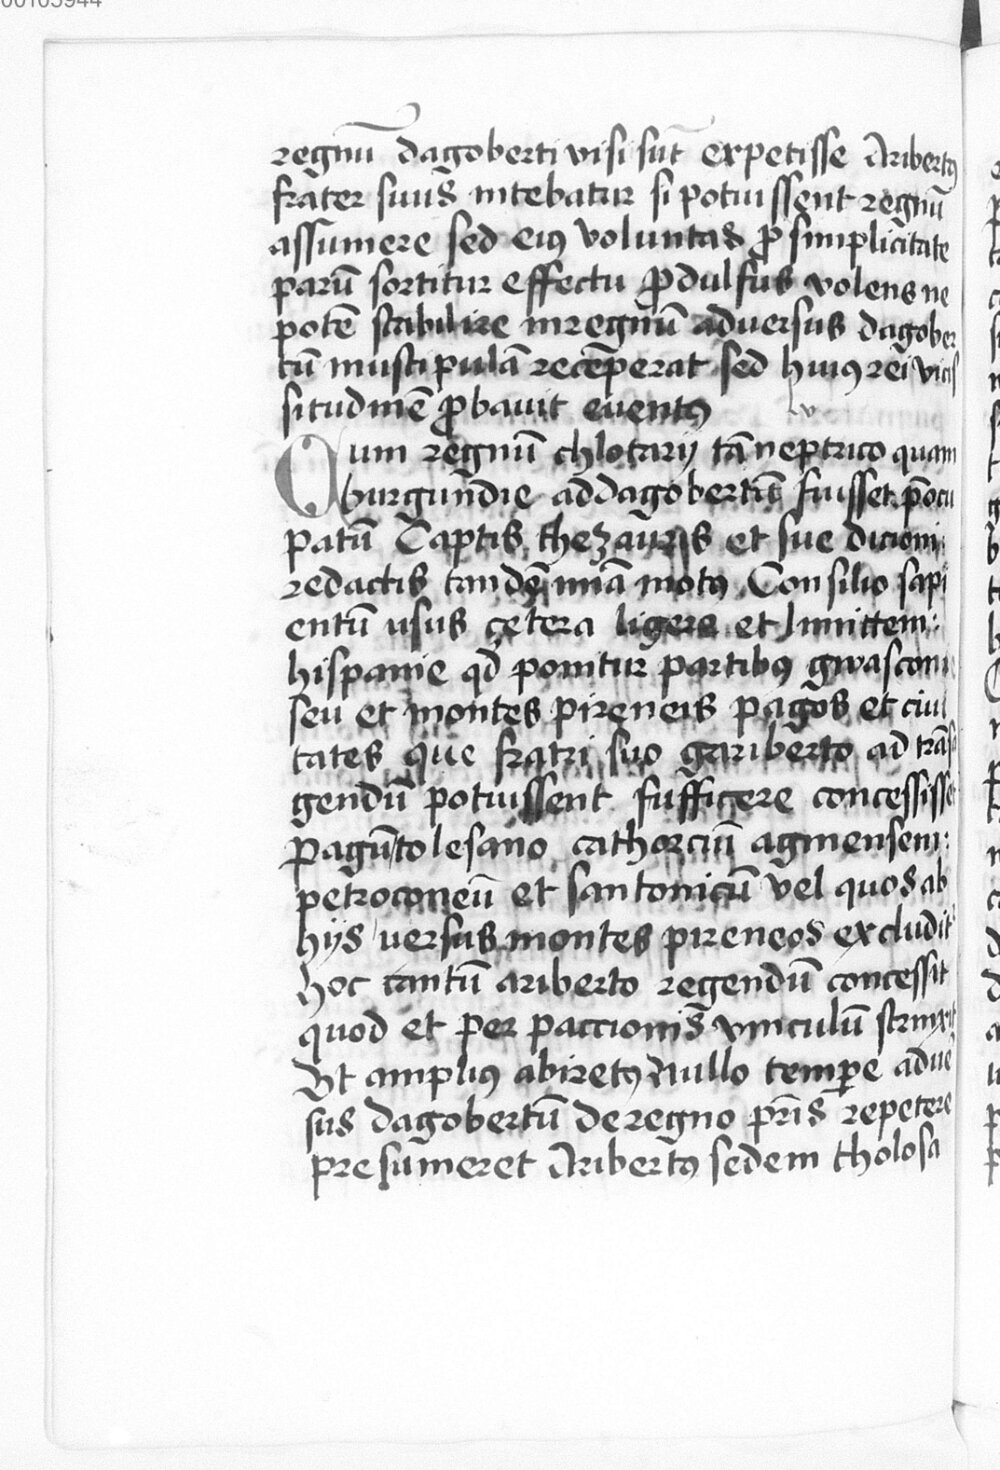 00103944
regnū dagoberti visi sūt expetisse Aribertꝯ
frater suus nitebatur si potuissent regnū
assumere sed eiꝯ voluntas ꝓ simplicitate
parū sortitur effectu ꝓdulfus volens ne
potē stabilire in regnū adversus dagober
tū muscipulā recēperat sed huiꝯ rei vicis
situdinē ꝓbavit eventꝯ lv
Qum regnū chlotarij tā neptrico quam
burgundie ad dagobertū fuisset p̄ocu
patū Captis thezauris et sue dicioni
redactis tandē miā motꝯ Consilio sapi
entū usus cetera ligere et limittem:
hispanie qd ponitur partibꝯ gwasconie
seu et montes pireneis pagos et civi
tates que fratri suo gariberto ad trās
gendū potuissent sufficere concessisset
pagū tolesano cathorciū agmensem:
petroconeū et santonicū vel quos ab
hijs versus montes pireneos excludit
hoc tantū ariberto regendū concessit
quod et per paccionis vinculū strinxit
Vt ampliꝯ abiretꝯ nullo tempꝑe adue
sus dagobertū de regno pr̄is repetere
presumeret Aribertꝯ sedem tholosa